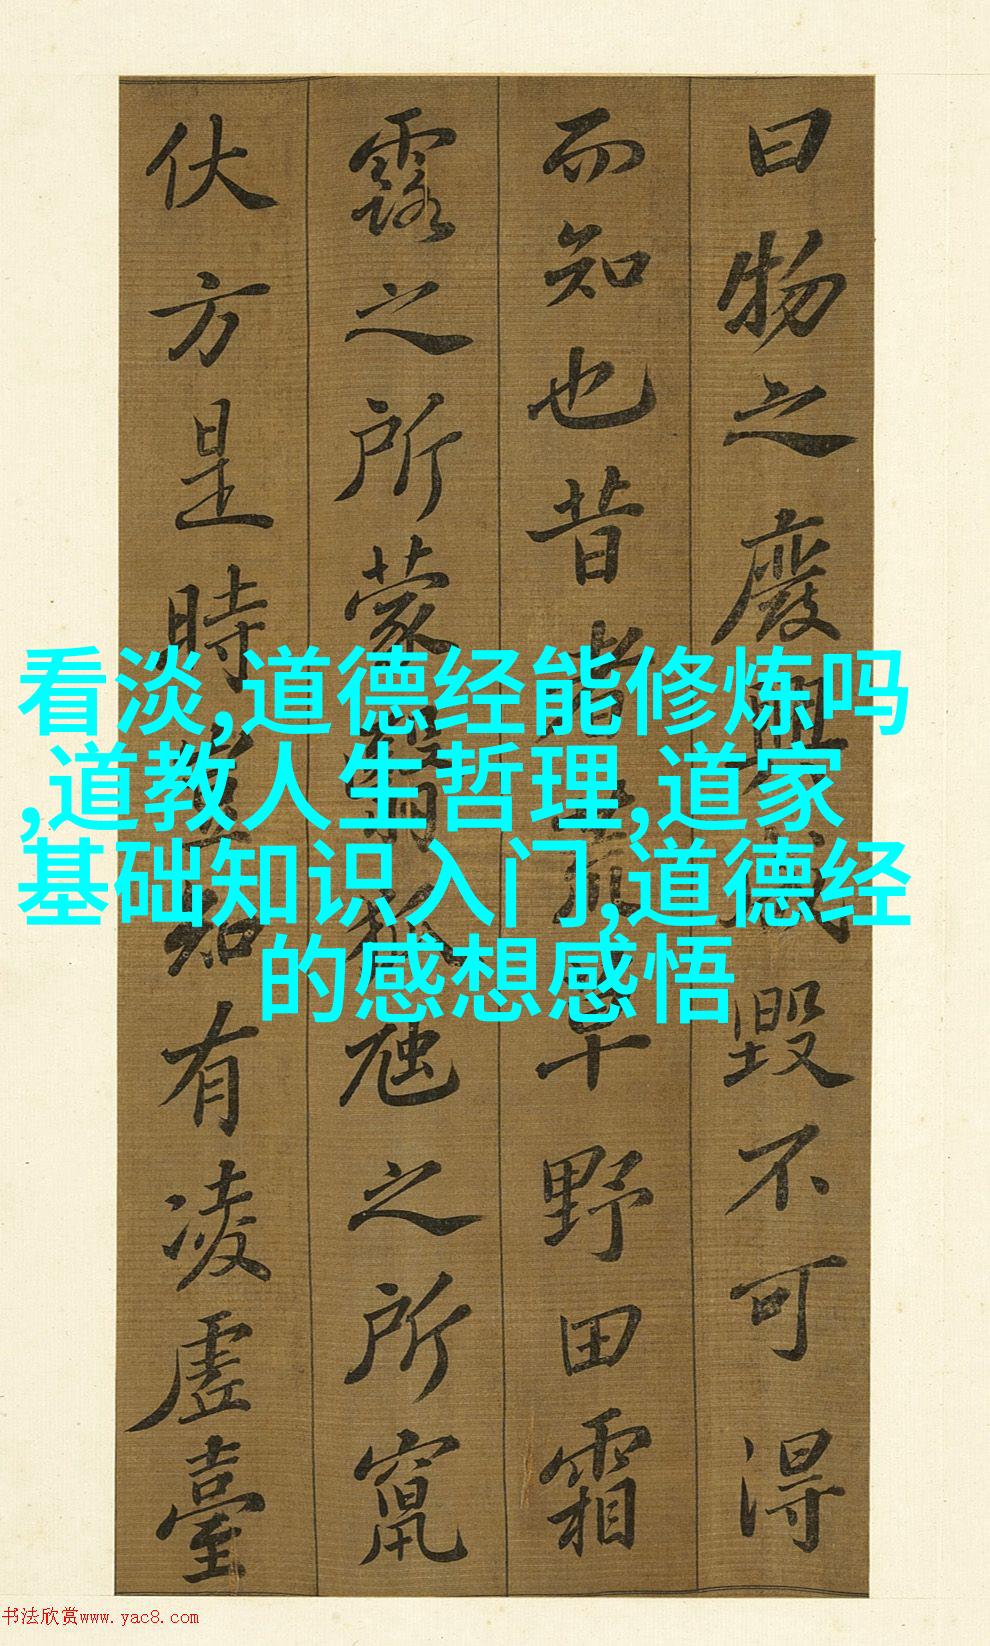 曰物之廢興成毀不可得
而知也昔者荒草野田霜
露之所蒙翳狐虺之所竄
伏方是時豈知有凌虛臺
看淡,道德经能修炼吗
,道教人生哲理,道家
基础知识入门,道德经
的感想感悟
书法欣赏www.yac8.com